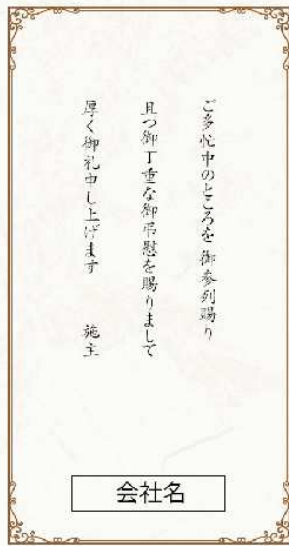 ご多忙中のところを御参列賜り
且つ御丁重な御弔慰を賜りまして
厚く御礼申し上げます 施主
会社名